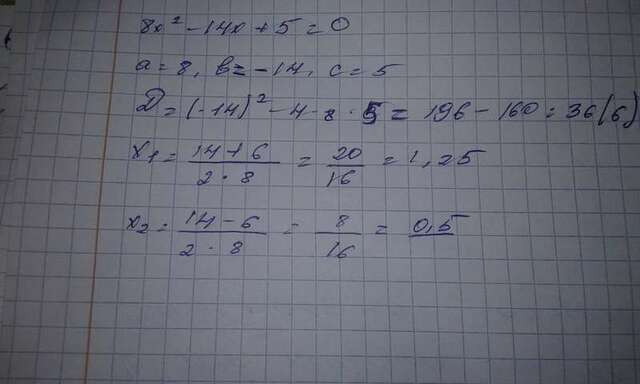 8x² - 14x + 5 = 0
a = 8, b = -14, c = 5
D = (-14)² - 4 · 8 · 5 = 196 - 160 = 36 (6)
x₁ = (14 + 6)/(2 · 8) = 20/16 = 1,25
x₂ = (14 - 6)/(2 · 8) = 8/16 = 0,5